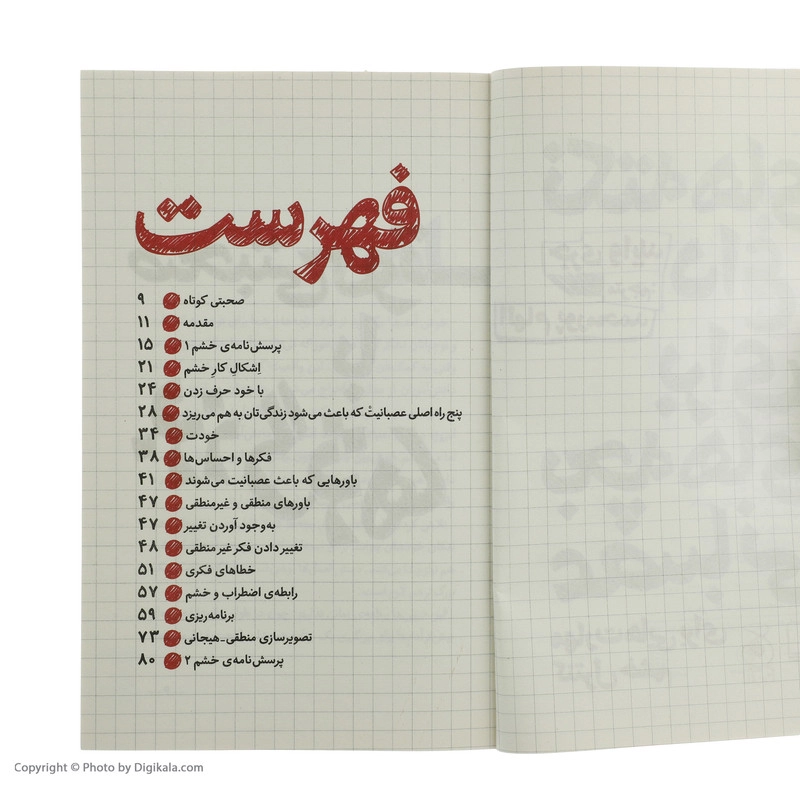 فهرست
صحبتی کوتاه ۹
مقدمه ۱۱
پرسش‌نامه‌ی خشم ۱ ۱۵
اِشکالِ کارِ خشم ۲۱
با خود حرف زدن ۲۴
پنج راه اصلی عصبانیتْ که باعث می‌شود زندگی‌تان به هم می‌ریزد ۲۸
خودت ۳۴
فکرها و احساس‌ها ۳۸
باورهایی که باعث عصبانیت می‌شوند ۴۱
باورهای منطقی و غیرمنطقی ۴۷
به‌وجود آوردن تغییر ۴۷
تغییر دادن فکر غیر منطقی ۴۸
خطاهای فکری ۵۱
رابطه‌ی اضطراب و خشم ۵۷
برنامه‌ریزی ۵۹
تصویرسازی منطقی-هیجانی ۷۳
پرسش‌نامه‌ی خشم ۲ ۸۰
Copyright © Photo by Digikala.com